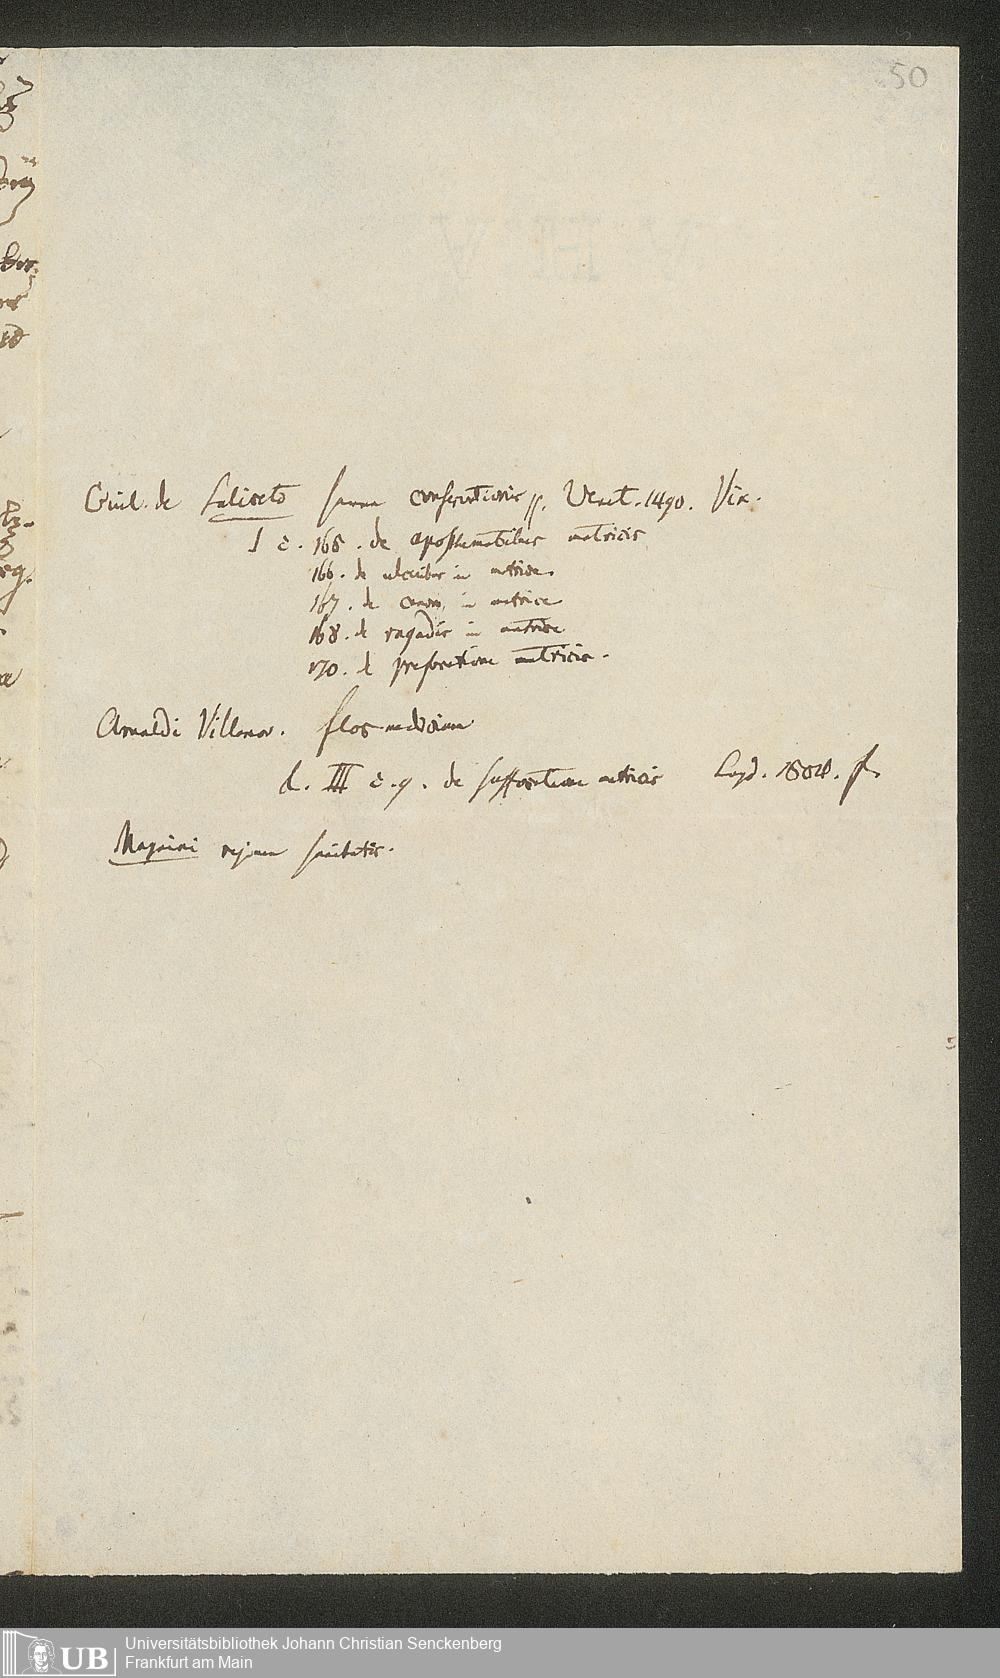 50
Guil. de Saliceto summa conservationis pp. Venet. 1490. Vix.
I c. 165. de apostematibus matricis
166. de ulceribus in matrice.
167. de cancro in matrice
168. de ragadis in matrice
170. de prefocatione matricis.
Arnaldi Villanov. flos medicinae
L. III c. 9. de suffocatione matricis Lugd. 1504. f.
Magnini regimen sanitatis.
Universitätsbibliothek Johann Christian Senckenberg
Frankfurt am Main
UB